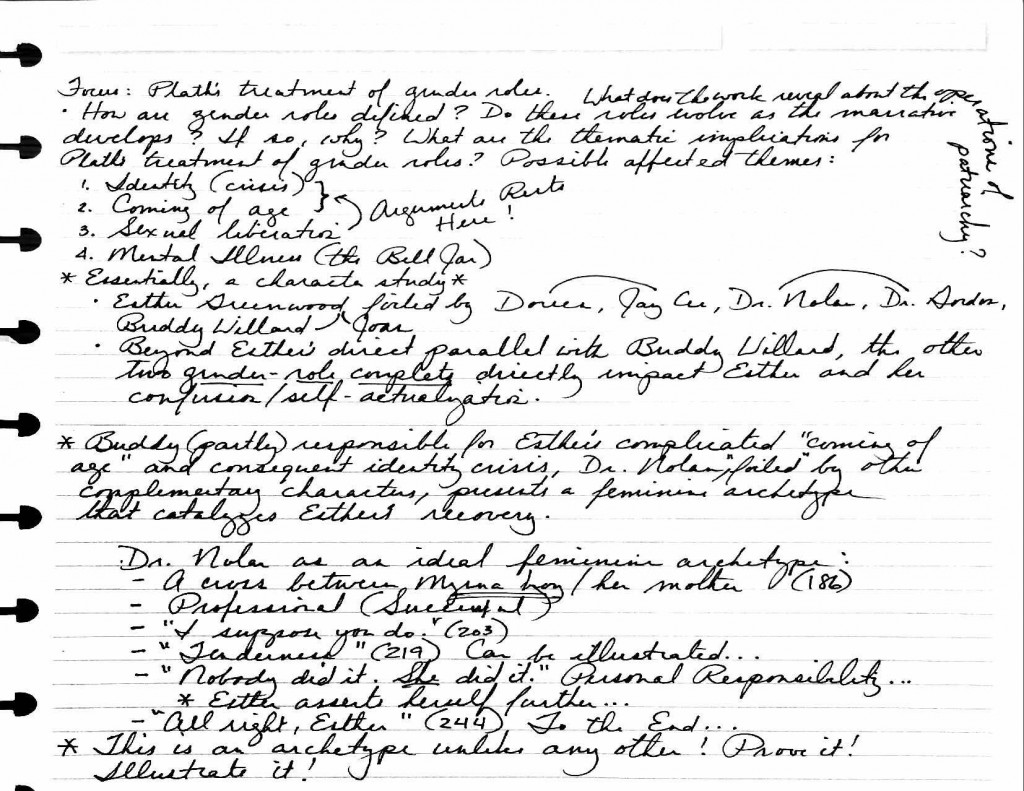 Focus: Plath's treatment of gender roles. What does the work reveal about the operations of patriarchy?
· How are gender roles defined? Do these roles evolve as the narrative
develops? If so, why? What are the thematic implications for
Plath's treatment of gender roles? Possible affected themes:
1. Identity (crisis)
2. Coming of age
Arguments Rests
Here!
3. Sexual liberation
4. Mental Illness (the Bell Jar)
* Essentially, a character study *
· Esther Greenwood, foiled by Doreen, Jay Cee, Dr. Nolan, Dr. Gordon,
Buddy Willard, Joan
· Beyond Esther's direct parallel with Buddy Willard, the other
two gender-role complets directly impact Esther and her
confusion/self-actualization.
* Buddy (partly) responsible for Esther's complicated "coming of
age" and consequent identity crisis, Dr. Nolan, "foiled" by other
complementary characters, presents a feminine archetype
that catalyzes Esther's recovery.
Dr. Nolan as an ideal feminine archetype:
- A cross between Myrna Loy/her mother (186)
- Professional (Successful)
- "I suppose you do." (203)
- "Tenderness" (219) Can be illustrated...
- "Nobody did it. She did it." Personal Responsibility...
* Esther asserts herself further...
- "All right, Esther" (244) To the End...
* This is an archetype unlike any other! Prove it!
Illustrate it!